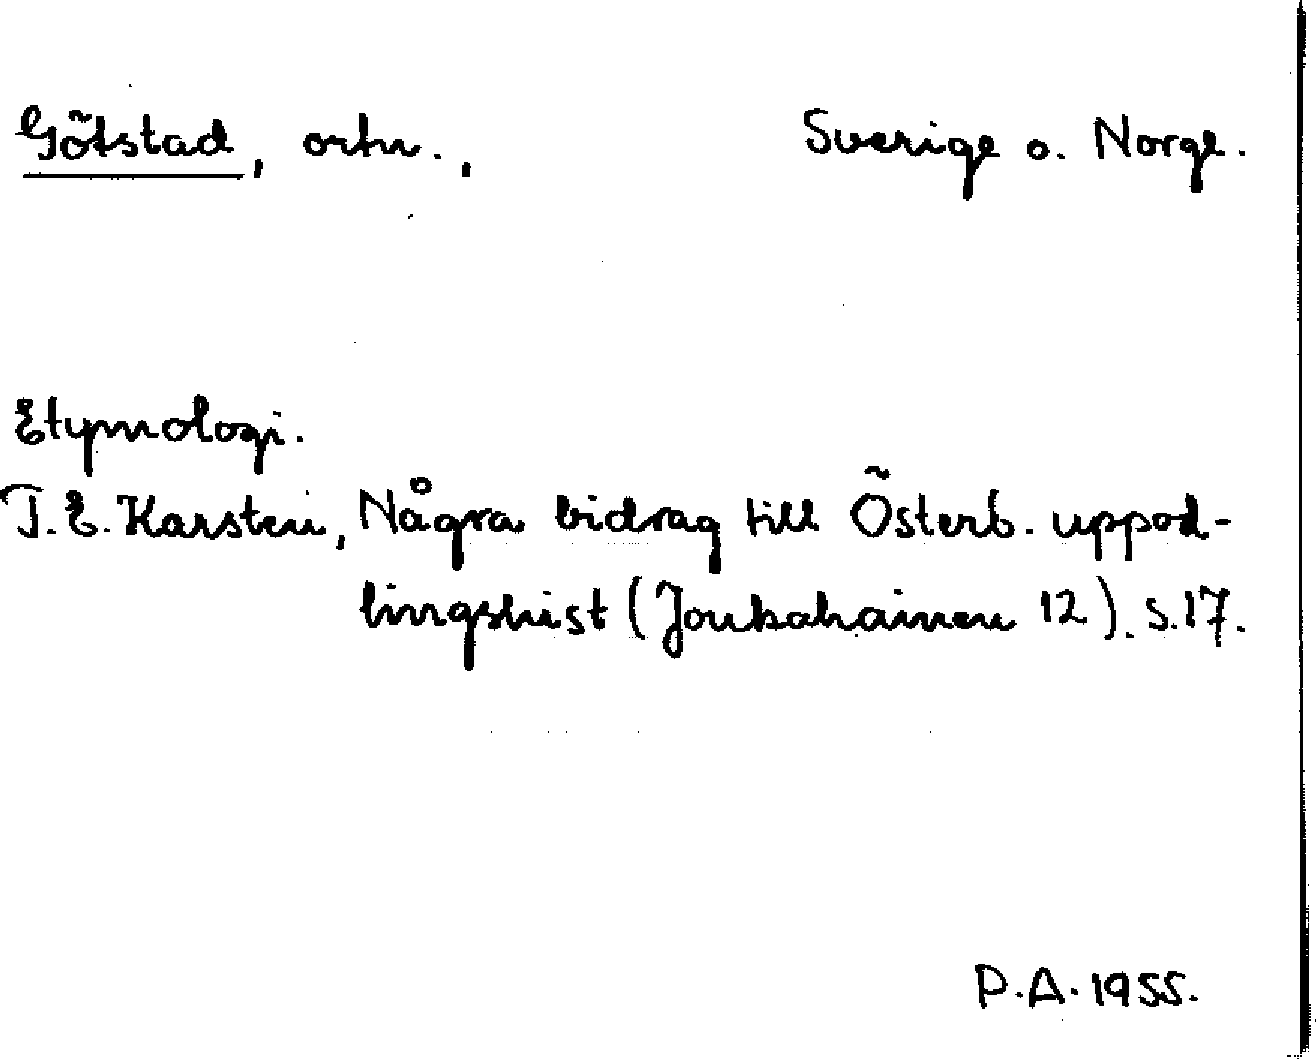 Götstad, ortn., Sverige o. Norge.
Etymologi.
T. E. Karsten, Några bidrag till Österb. uppod-
lingshist (Joukahainen 12). s. 17.
P. A. 1955.